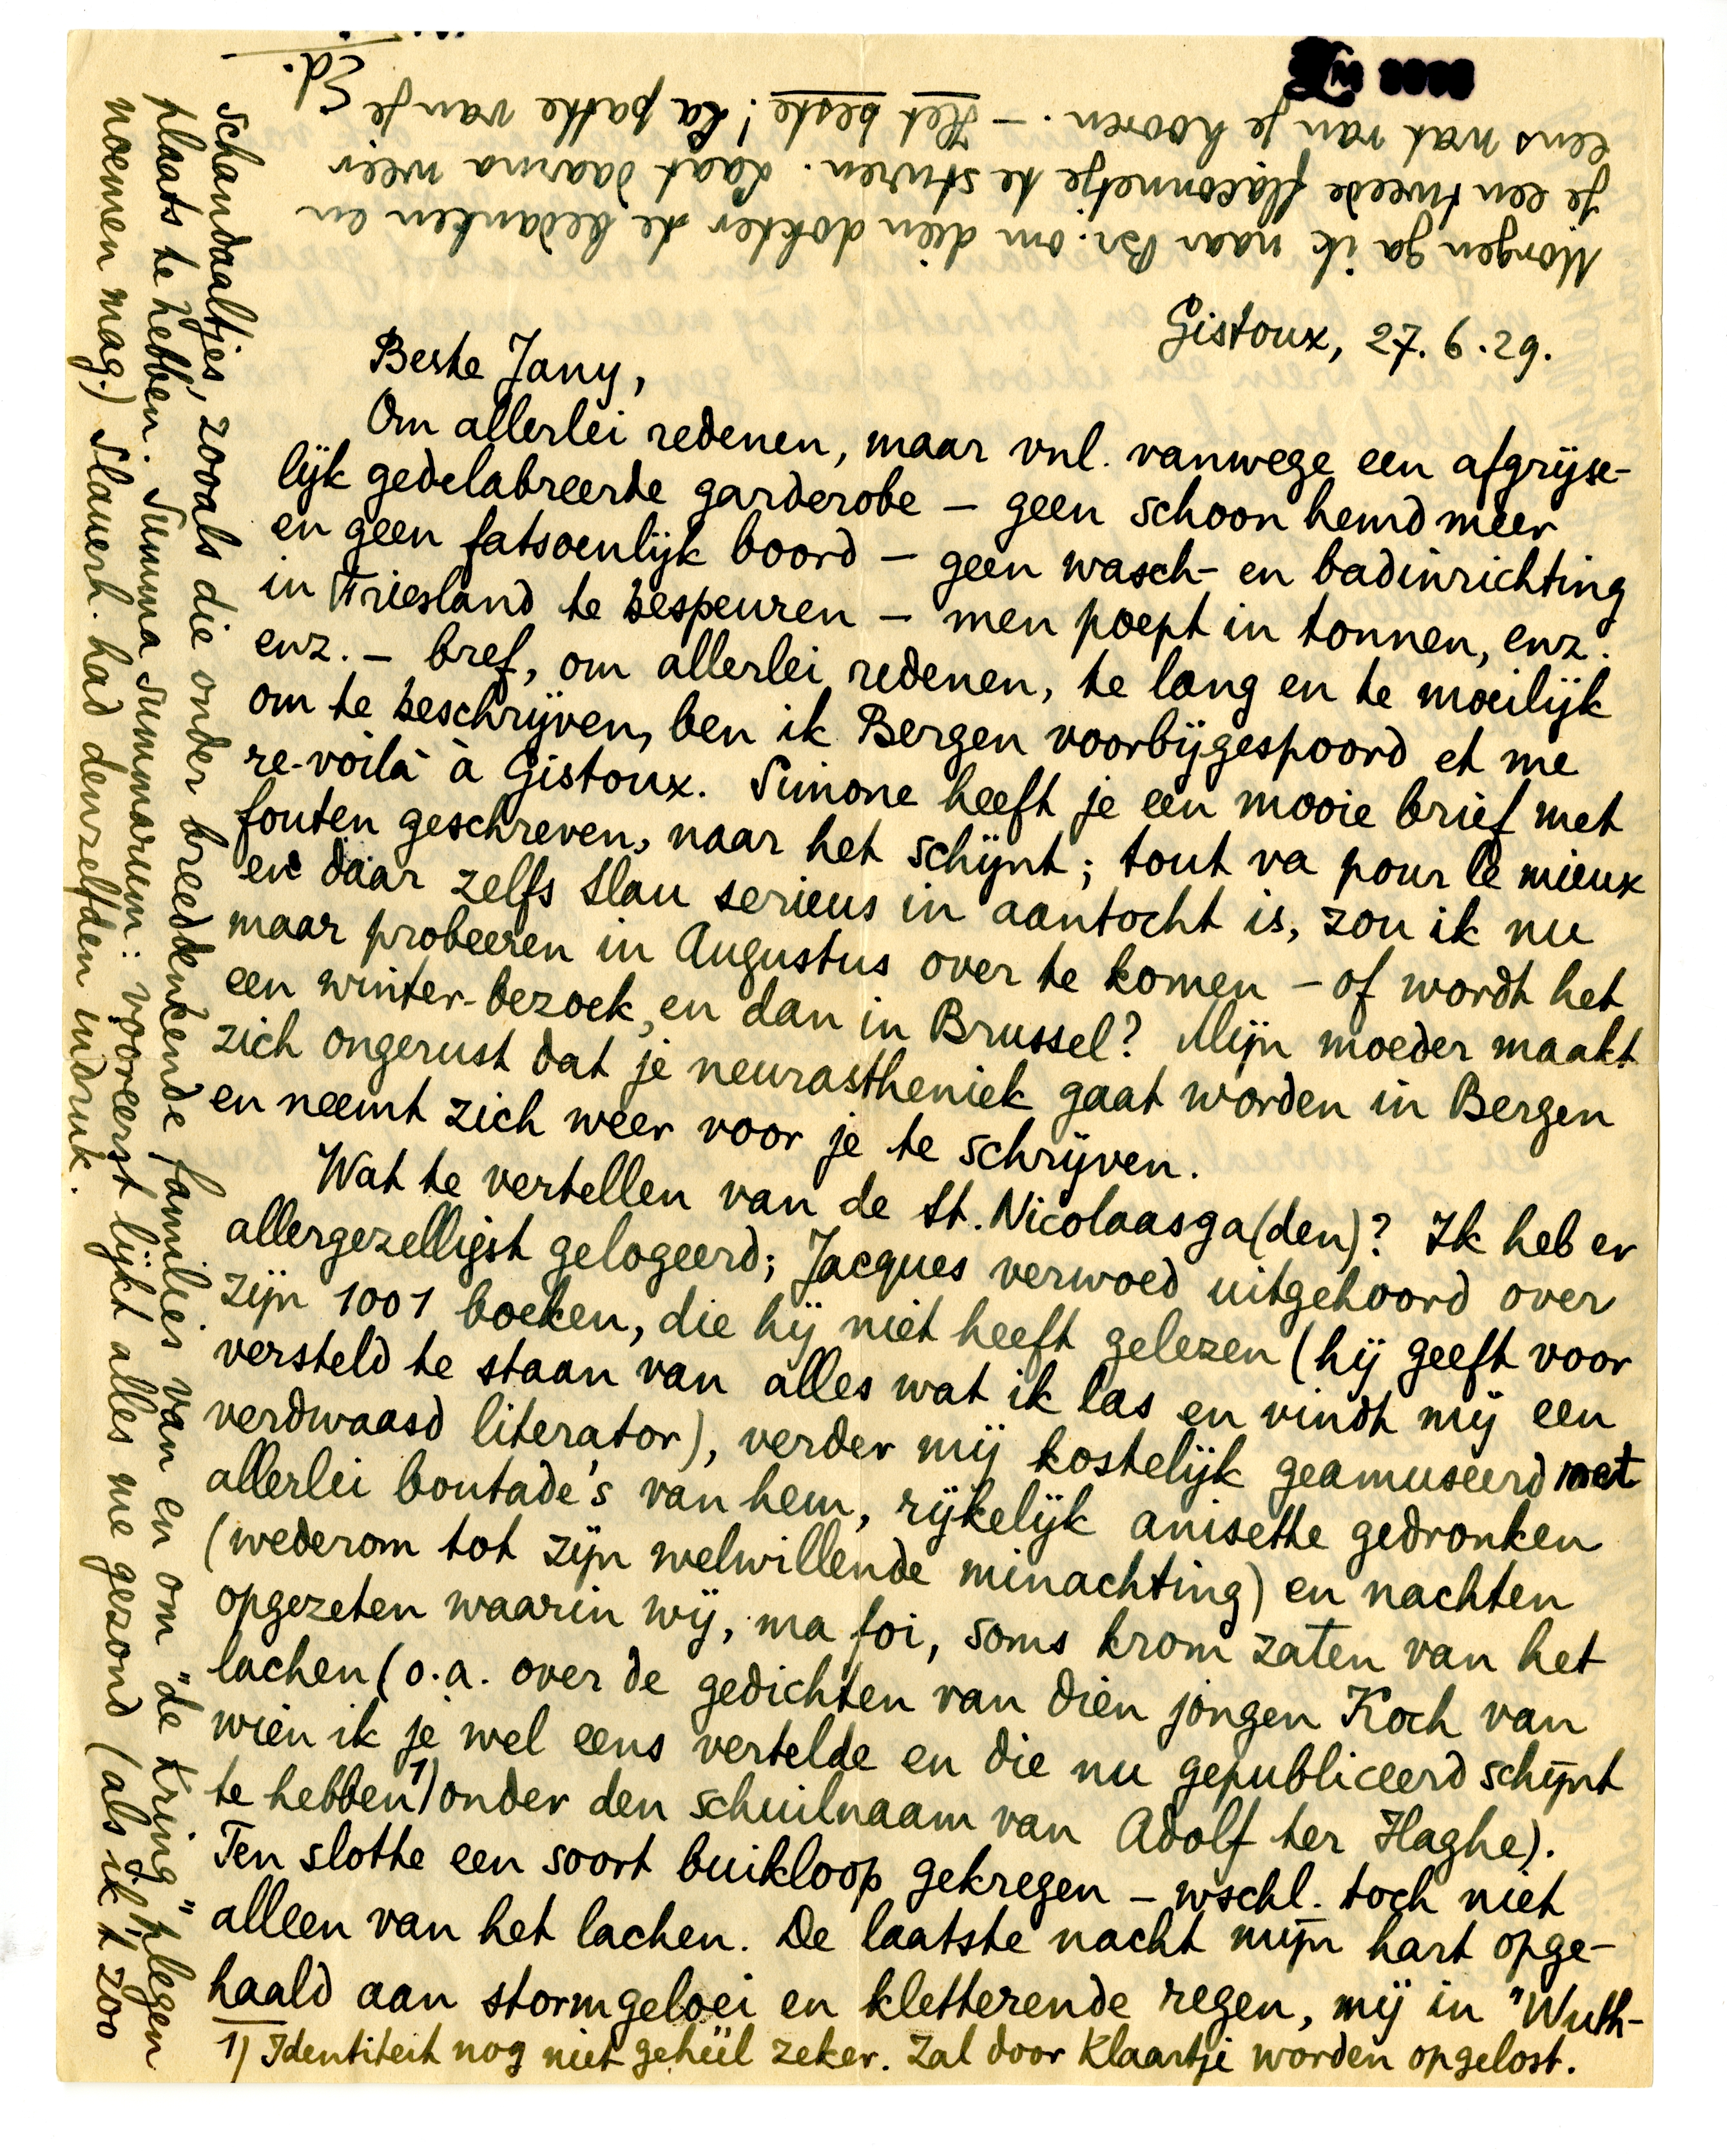 Gistoux, 27.6.29.
Beste Jany,
Om allerlei redenen, maar vnl. vanwege een afgrijse-
lijk gedelabreerde garderobe – geen schoon hemd meer
en geen fatsoenlijk boord – geen wasch- en badinrichting
in Friesland te bespeuren – men poept in tonnen, enz.
enz. – bref, om allerlei redenen, te lang en te moeilijk
om te beschrijven, ben ik Bergen voorbijgespoord et me
re-voilà à Gistoux. Simone heeft je een mooie brief met
fouten geschreven, naar het schijnt; tout va pour le mieux
en daar zelfs Slau serieus in aantocht is, zou ik nu
maar probeeren in Augustus over te komen – of wordt het
een winter-bezoek, en dan in Brussel? Mijn moeder maakt
zich ongerust dat je neurastheniek gaat worden in Bergen
en neemt zich weer voor je te schrijven.
Wat te vertellen van de St. Nicolaasga(den)? Ik heb er
allergezelligst gelogeerd; Jacques verwoed uitgehoord over
zijn 1001 boeken, die hij niet heeft gelezen (hij geeft voor
versteld te staan van alles wat ik las en vindt mij een
verdwaasd literator), verder mij kostelijk geamuseerd met
allerlei boutade's van hem, rijkelijk anisette gedronken
(wederom tot zijn welwillende minachting) en nachten
opgezeten waarin wij, ma foi, soms krom zaten van het
lachen (o.a. over de gedichten van dien jongen Koch van
wien ik je wel eens vertelde en die nu gepubliceerd schijnt
te hebben 1) onder den schuilnaam van Adolf ter Haghe).
Ten slotte een soort buikloop gekregen – wschl. toch niet
alleen van het lachen. De laatste nacht mijn hart opge-
haald aan stormgeloei en kletterende regen, mij in "Wuth-
1) Identiteit nog niet geheel zeker. Zal door Klaartje worden opgelost.
schandaaltjes, zooals die onder breeddenkende families van en om "de Kring" plegen
plaats te hebben. Summa summarum: vooreerst lijkt alles me gezond (als ik 't zoo
noemen mag.) Slauerh. had denzelfden indruk.
Morgen ga ik naar Br. om dien dokter te bedanken en
je een tweede flaconnetje te sturen. Laat daarna weer
eens wat van je hooren. – Het beste! La patte van je
Ed.